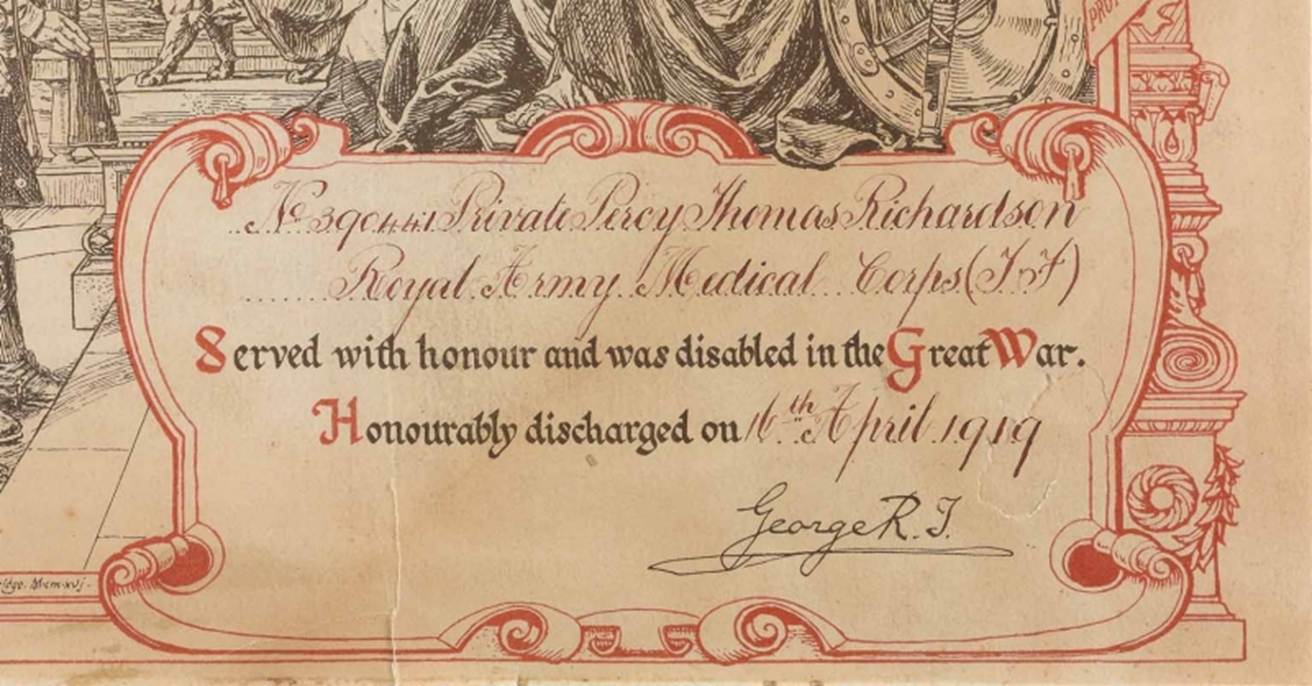 PRO
No 390441 Private Percy Thomas Richardson
Royal Army Medical Corps (T.F)
Served with honour and was disabled in the Great War.
Honourably discharged on 16th April 1919
George R.I.
Mcmxvj.